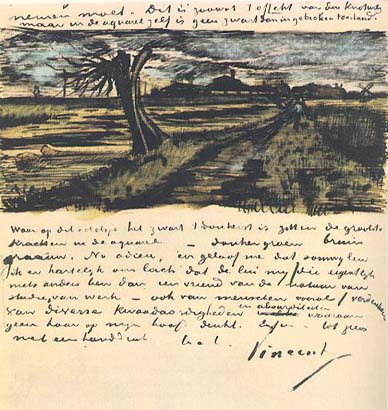 nemen moet. Dit is zoowat 't effekt van den Knotwilg
maar in de aquarel zelf is geen zwart dan in gebroken toestand.
Waar op dit schetsje het zwart 't donkerst is zitten de grootste
krachten in de aquarel – donkergroen bruin
graauw. Nu adieu, en geloof me dat somwijlen
ik er hartelijk om lach dat de lui mij die eigentlijk
niets anders ben dan een vriend van de natuur van
studie, van werk – ook van menschen vooral / verdenken
van diverse kwaadaardigheden en absurditeiten waaraan
geen haar op mijn hoofd denkt. Enfin – tot ziens
met een handdruk t.à.t.
Vincent